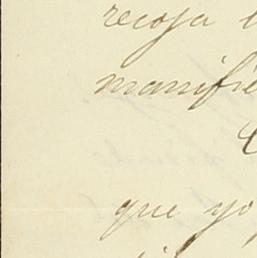 recoja
manifie
que yo